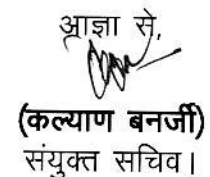 आज्ञा से,
(कल्याण बनर्जी)
संयुक्त सचिव।